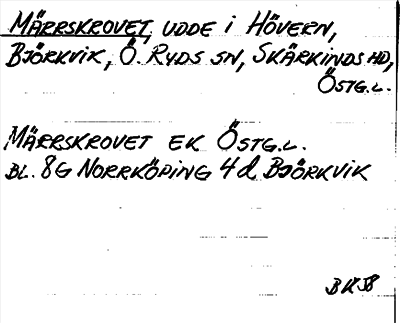 MÄRRSKROVET, UDDE I HÖVERN,
BJÖRKVIK, Ö. RYDS SN, SKÄRKINDS HD,
ÖSTG.L.
MÄRRSKROVET EK ÖSTG.L.
BL. 8G NORRKÖPING 4d BJÖRKVIK